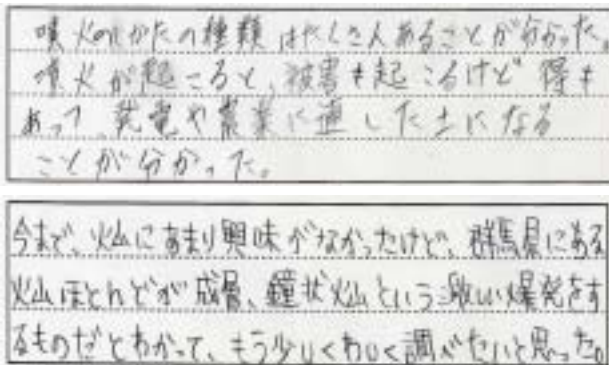 噴火のしかたの種類はたくさんあることが分かった。
噴火が起こると、被害も起こるけど得も
あって、発電や農業に適した土になる
ことが分かった。
今まで、火山にあまり興味がなかったけど、群馬県にある
火山ほとんどが成層、鐘状火山という激しい爆発をす
るものだとわかって、もう少しくわしく調べたいと思った。